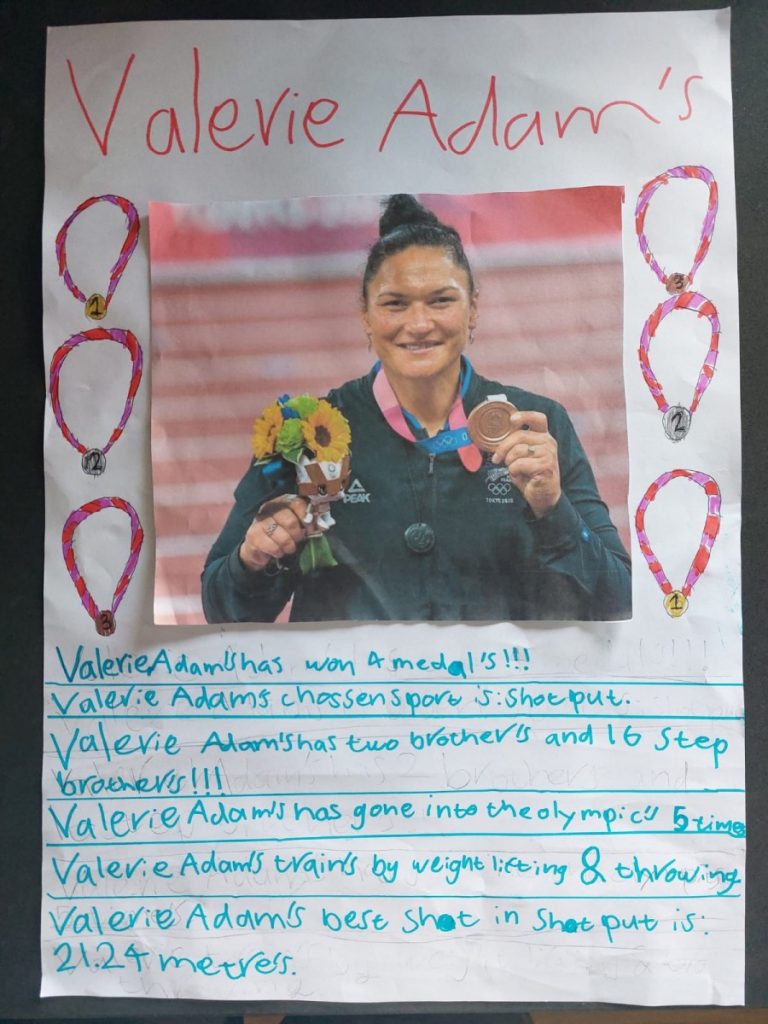 Valerie Adam's
1
3
2
2
3
1
PEAK
TOKYO 2020
Valerie Adam's has won 4 medal's!!!
Valerie Adam's chossen sport is: shot put.
Valerie Adam's has two brother's and 16 step
brother's!!!
Valerie Adam's has gone into the olympic's 5 times
Valerie Adam's train's by weight lifting & throwing
Valerie Adam's best shot in shot put is:
21.24 metre's.